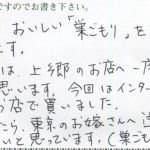 ですのでお書き下さい。
おいしい「巣ごもり」を
です。
は、上郷のお店へ一度
思います。今回はインター
お店で買いました。
たら、東京のお嫁さんへ送
いと思っています。(巣ごも